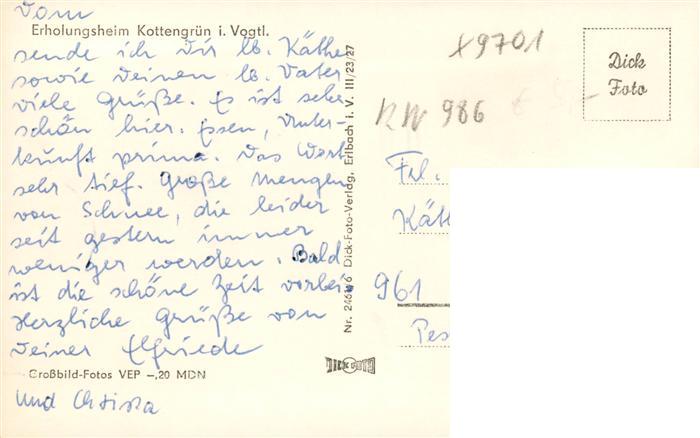 Vom
Erholungsheim Kottengrün i. Vogtl.
sende ich Dir lb. Käthe
sowie Deinen lb. Vater
viele Grüße. Es ist sehr
schön hier. Essen, Unter-
kunft prima. Das
sehr tief. Große Mengen
von Schnee, die leider
seit gestern immer
weniger werden. Bald
ist die schöne Zeit vorbei
Herzliche Grüße von
Deiner Elfriede
Großbild-Fotos VEP -,20 MDN
und
Dick-Foto-Verlag, Erlbach i. V. III/23/27
DICK FOTO
X9701
KW 986
Dick
Foto
Frl.
Käth
961